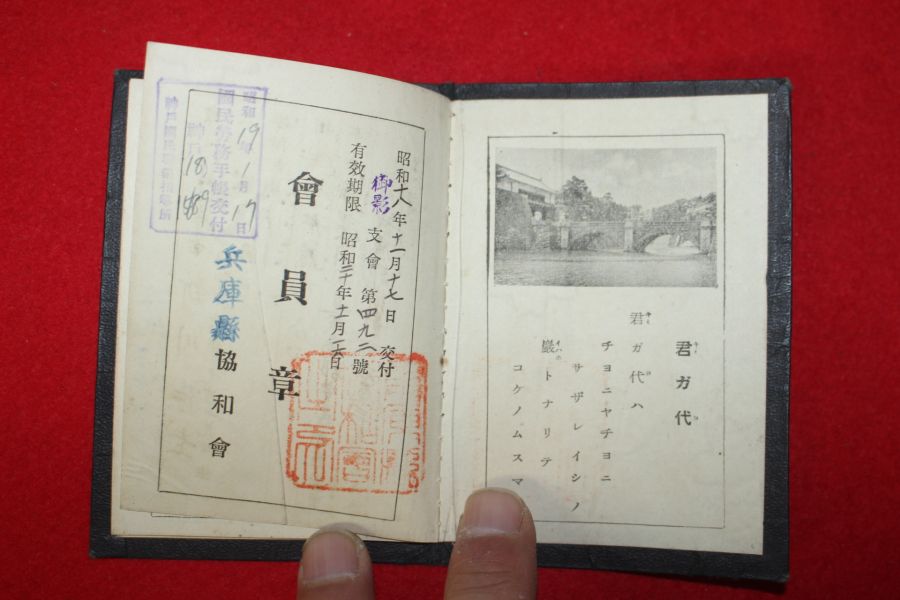 君ガ代
君ガ代ハ
チヨニヤチヨニ
サザレイシノ
巖トナリテ
コケノムスマ
昭和十八年十一月十七日 交付
御影支會 第四九二號
有效期限 昭和二十年十一月
會員章
兵庫縣協和會
昭和19年1月17日
國民勞務手帳交付